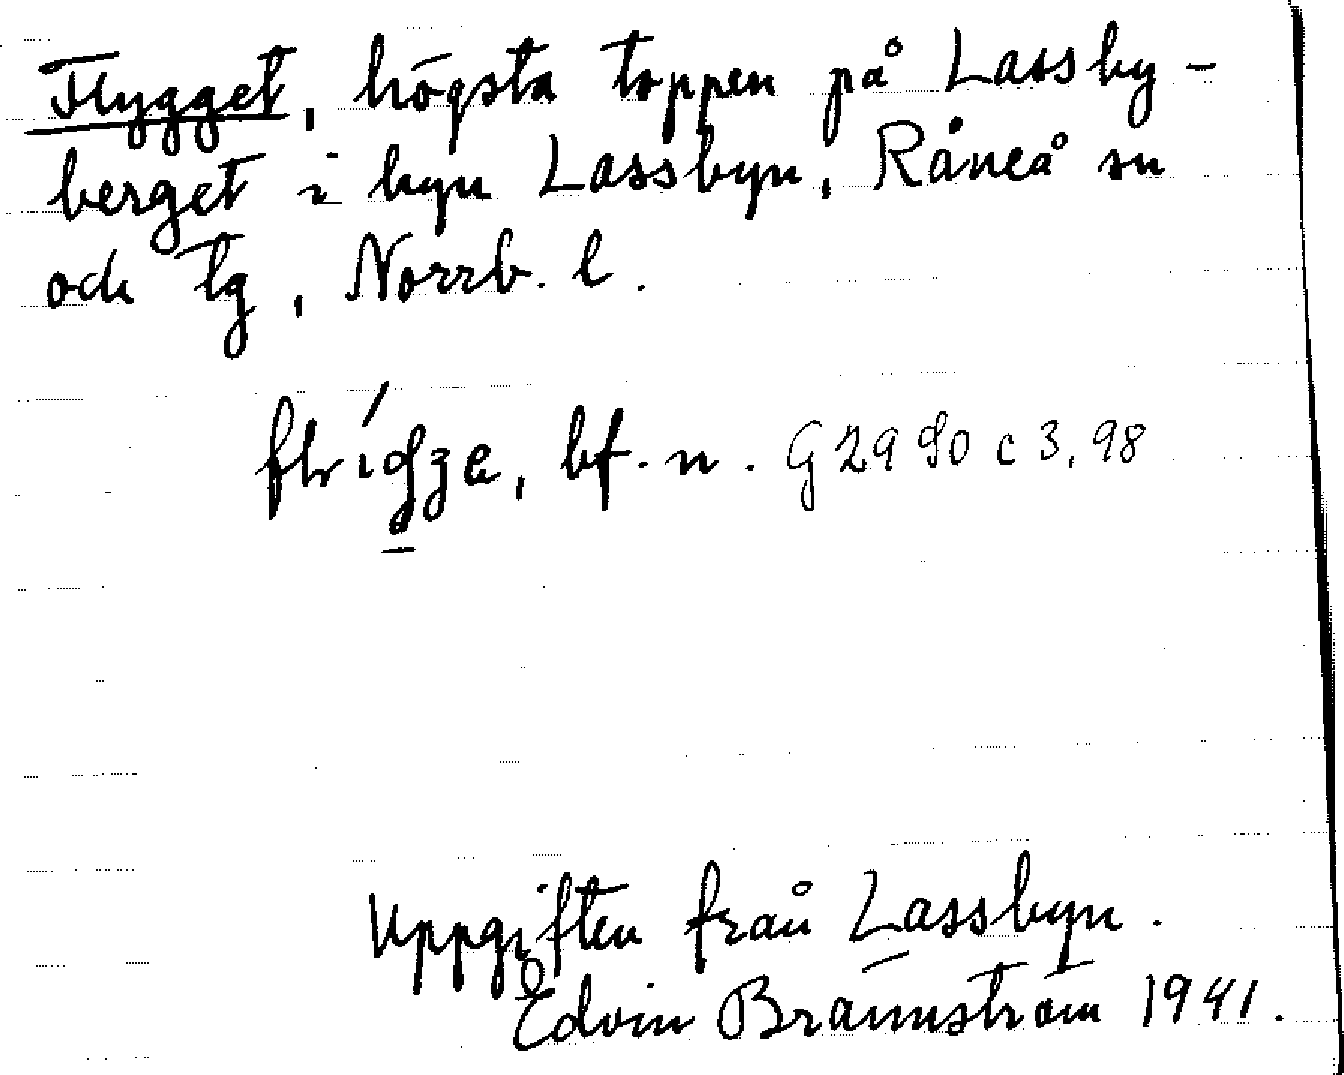 Flygget, högsta toppen på Lassby-
berget i byn Lassbyn, Råneå sn
och tg, Norrb. l.
bf. n. G 2990 c 3, 98
Uppgiften från Lassbyn.
Edvin Brännström 1941.